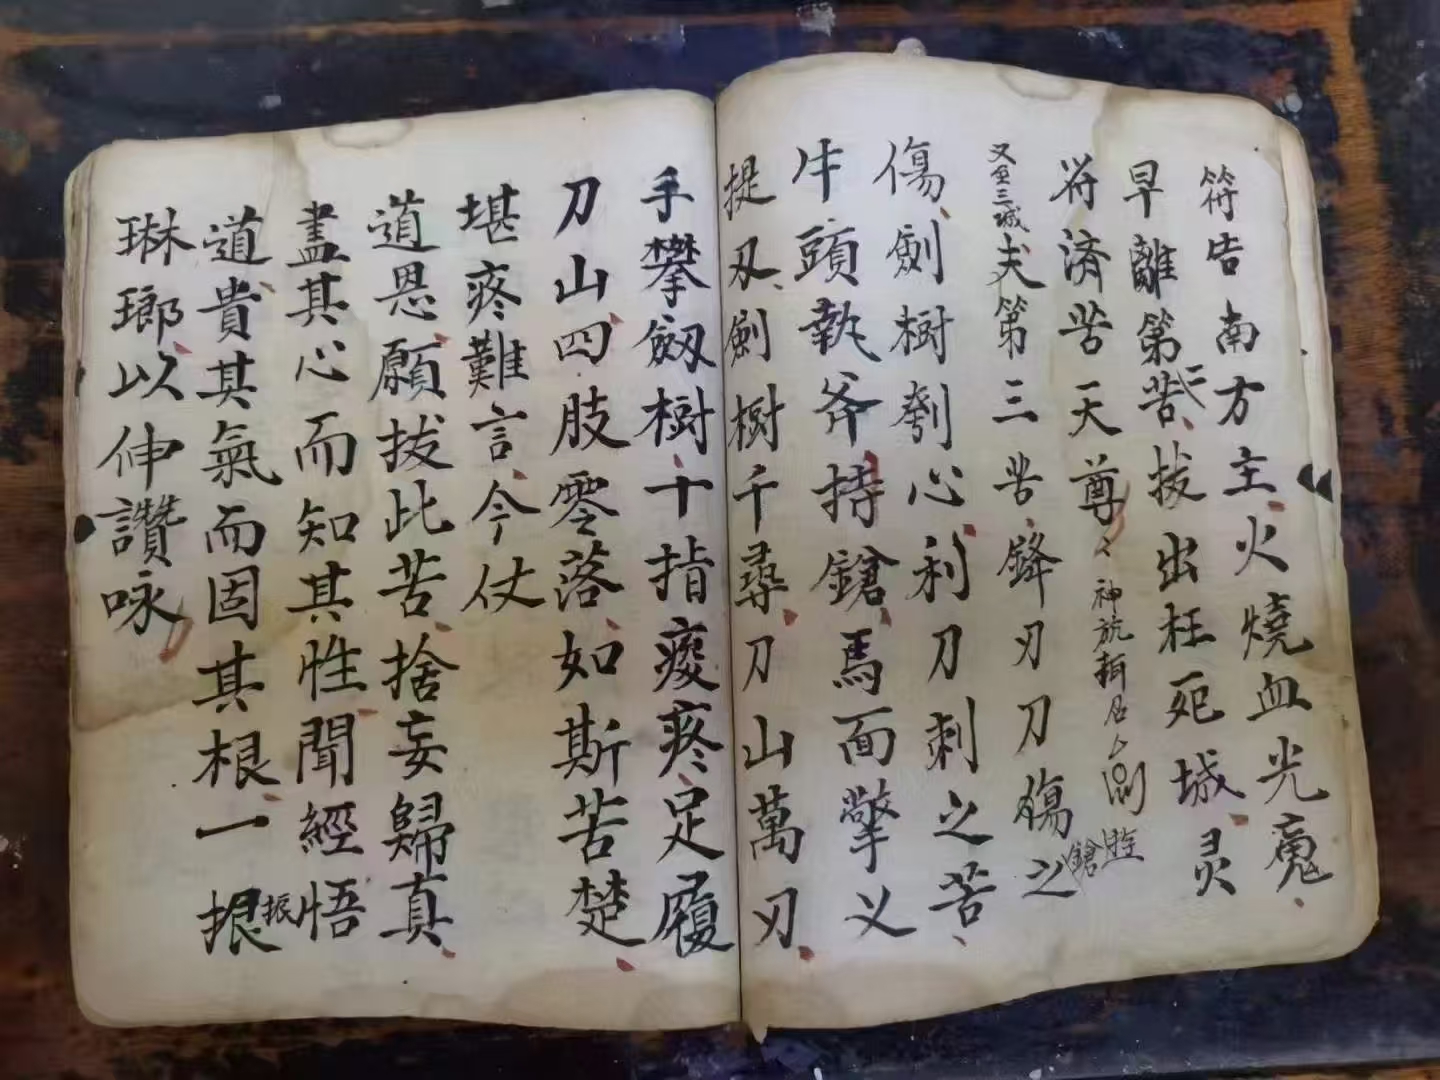 符告南方主火燒血光魂
早離第二苦拔出枉死城灵
符濟苦天尊々神
又至三城夫第三苦鋒刃刀傷之鎗
傷劍樹刳心利刀刺之苦
牛頭執斧持鎗馬面擎义
提刄劍樹千尋刀山萬刃
手攀劔樹十指痠疼足履
刀山四肢零落如斯苦楚
堪疼難言今仗
道恩願拔此苦捨妄歸真
盡其心而知其性聞經悟
道貴其氣而固其根一振振
琳瑯以伸讚咏